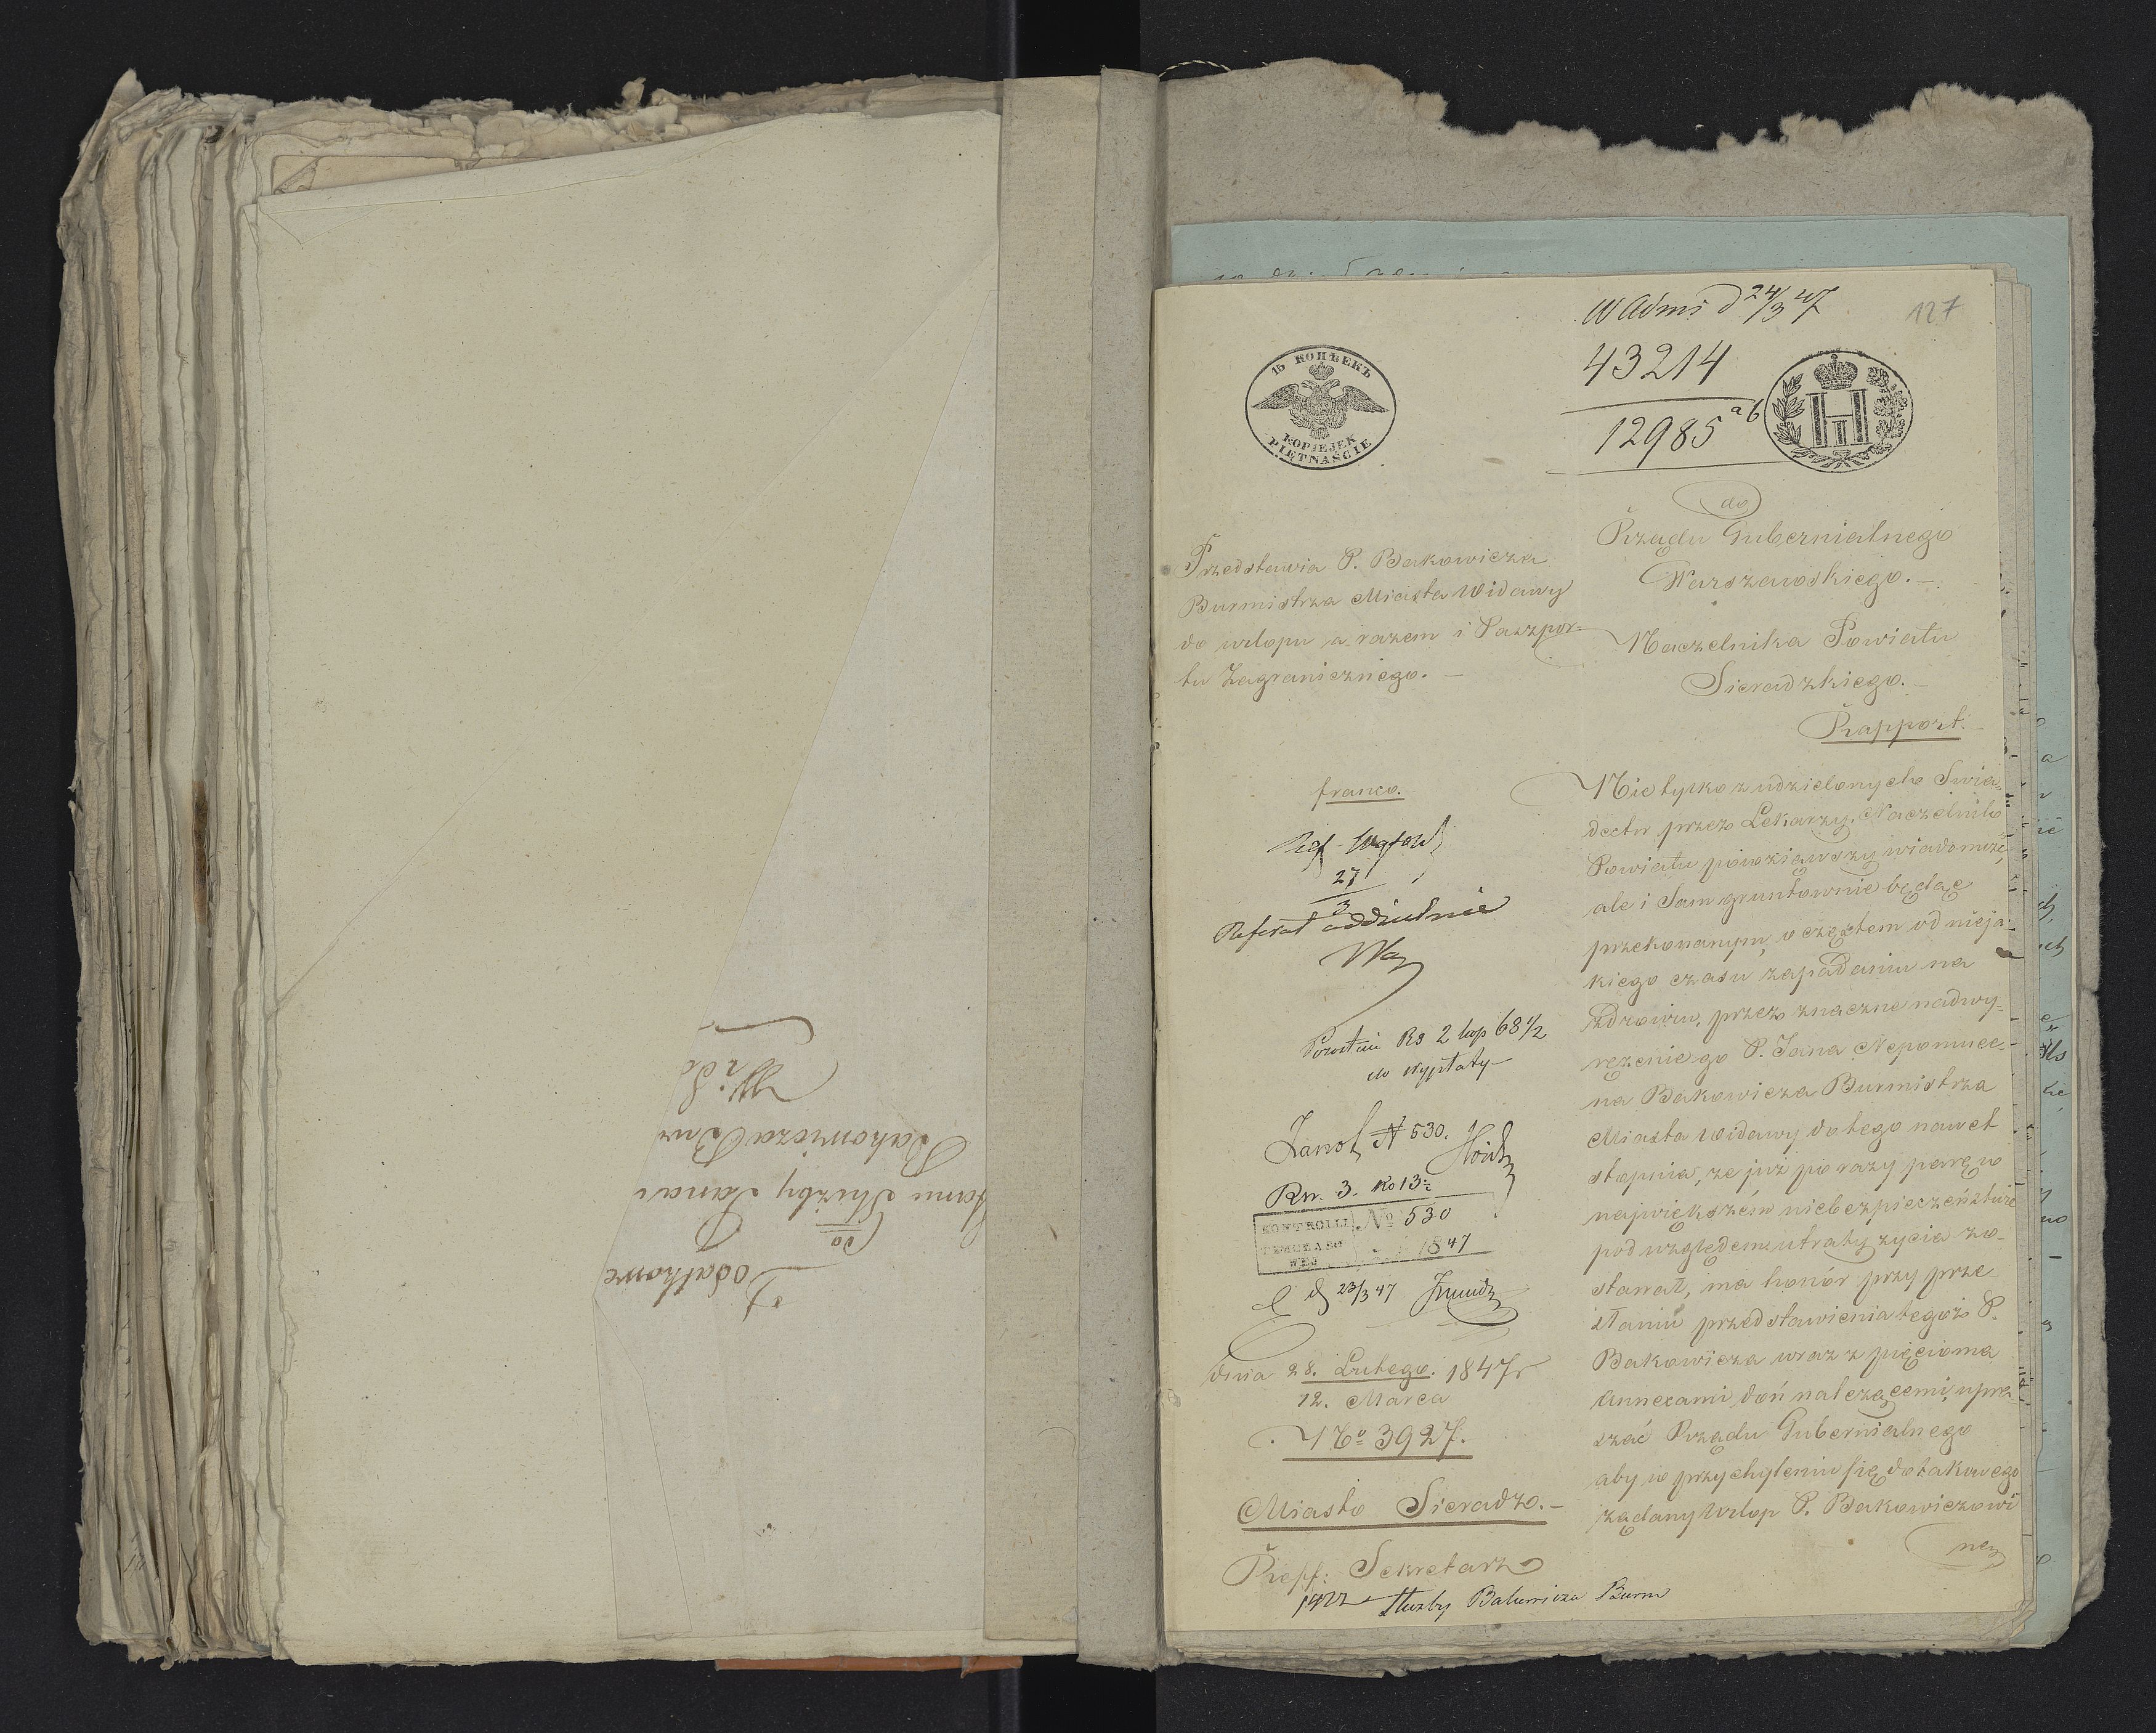 Dodatkowe
do
Stanu Służby Jana
Bakowicza Bur
Wid
W Admi d 24/3 47
127
43214
12985 ab
15 КОПѢЕКЪ
KOPIEJEK
PIĘTNAŚCIE
H I
do
Rządu Gubernialnego
Warszawskiego. –
Naczelnika Powiatu
Sieradzkiego. –
Rapport. –
Przedstawia P. Bakowicza
Burmistrza Miasta Widawy
do urlopu a razem i Paszpor-
tu Zagranicznego. –
franco.
27
3
Referat oddzielnie
Pozostaie Rs 2 kop 68 1/2
do wypłaty
No 530.
Rs. 3. Ko 13
KONTROLLI
TYMCZASO
WEJ
No 530
1847
d 23/3 47
dnia 28. Lutego. 1847 r
12. Marca
No 3927.
Miasto Sieradz. –
Repf: Sekretarz
Służby Bakowicza Burm
Nie tylko z udzielonych Świa-
dectw przez Lekarzy, Naczelnik
Powiatu powziąwszy wiadomość,
ale i Sam gruntownie będąc
przekonanym, o częstem od nieja-
kiego czasu zapadaniu na
zdrowiu, przez znaczne nadwy-
rężenie go P. Jana Nepomuce-
na Bakowicza Burmistrza
Miasta Widawy do tego nawet
stopnia, że już po razy parę w
największém niebezpieczeństwie
pod względem utraty życia zo-
stawał, ma honór przy prze-
słaniu przedstawienia tegoż P.
Bakowicza wraz z pięcioma
Annexami doń należącemi, upra-
szać Rządu Gubernialnego
aby w przychyleniu się do takowego
żądany Urlop P. Bakowiczowi